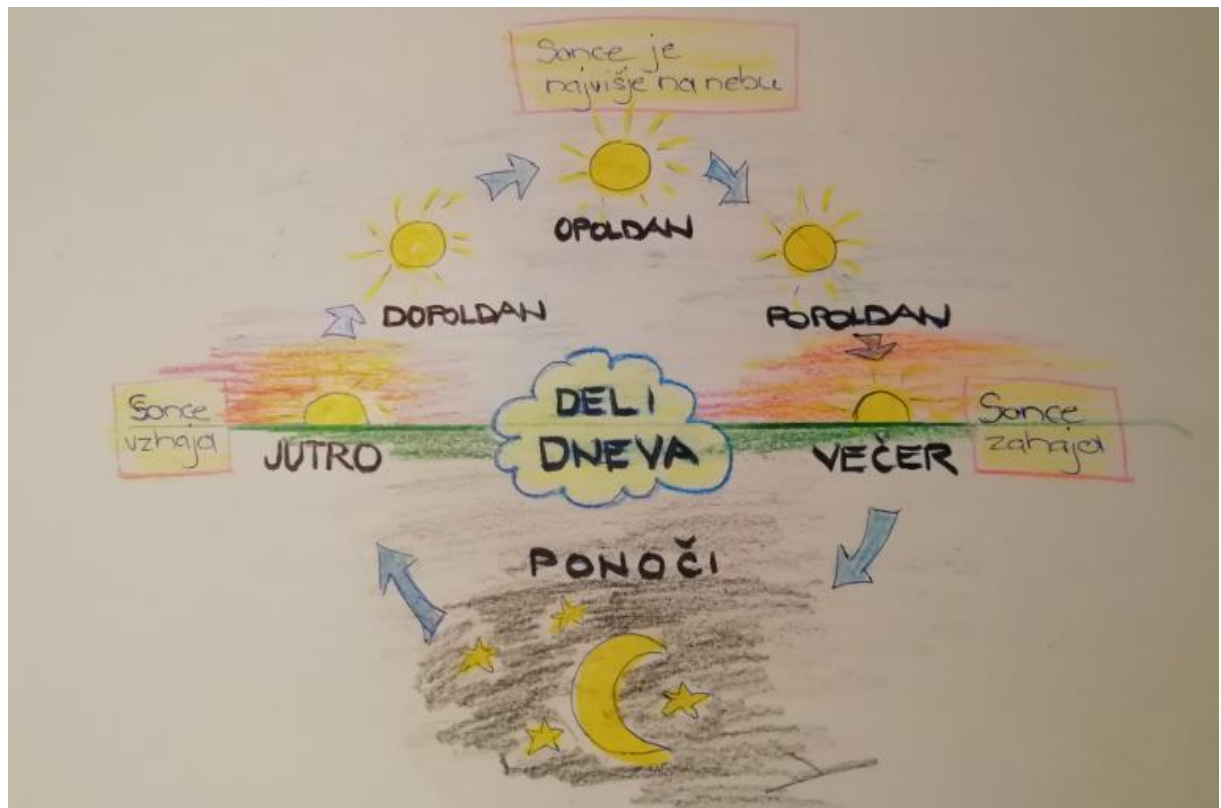 Sonce je
najvišje na nebu
OPOLDAN
DOPOLDAN
POPOLDAN
Sonce
vzhaja
JUTRO
DELI
DNEVA
VEČER
Sonce
zahaja
PONOČI